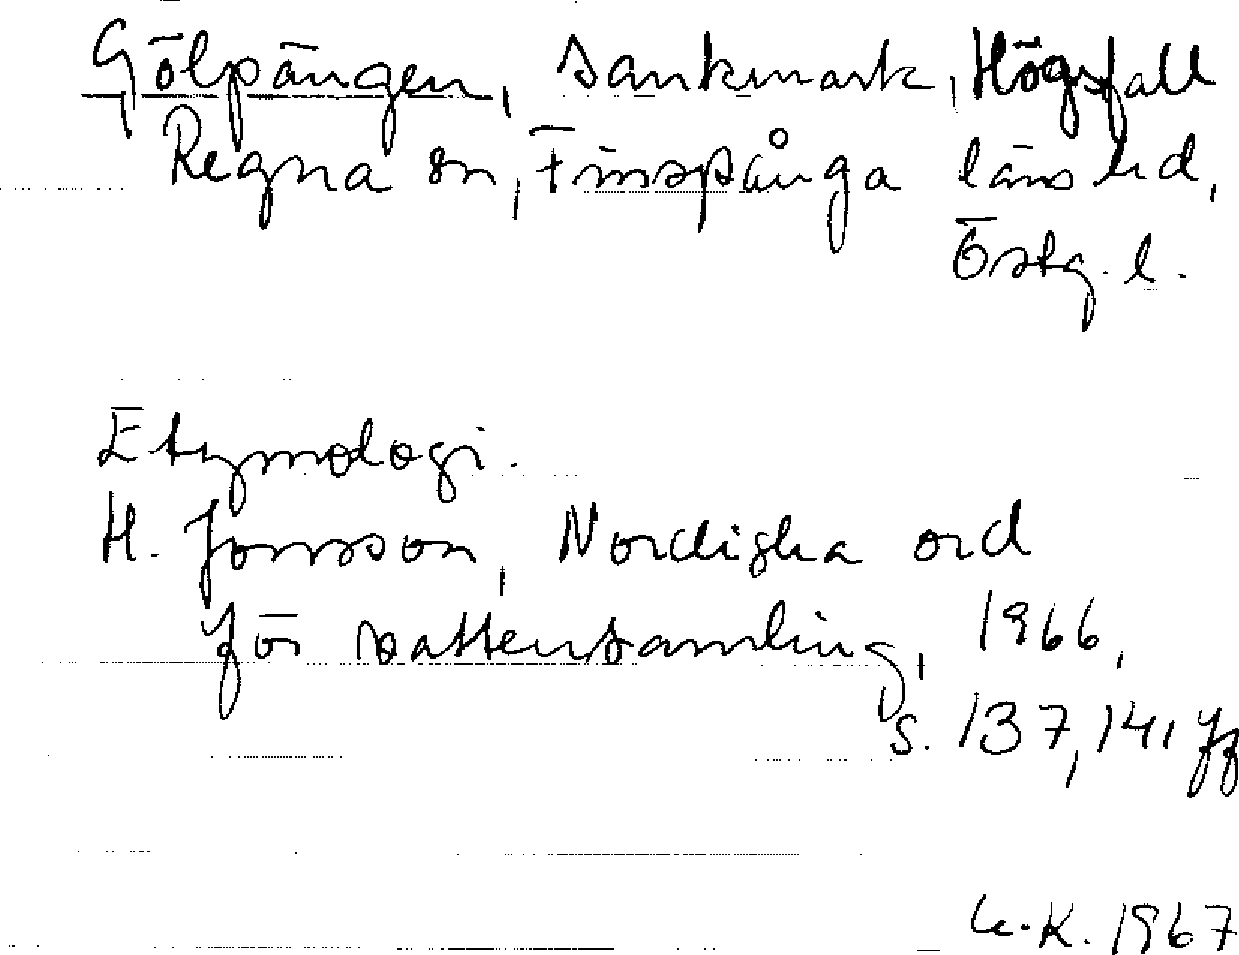 Gölpängen, sankmark, Högsfall
Regna sn, Finspånga läns hd,
Östg. l.
Etymologi.
H. Jonsson, Nordiska ord
för vattensamling, 1966,
s. 137, 141 ff
K. 1967